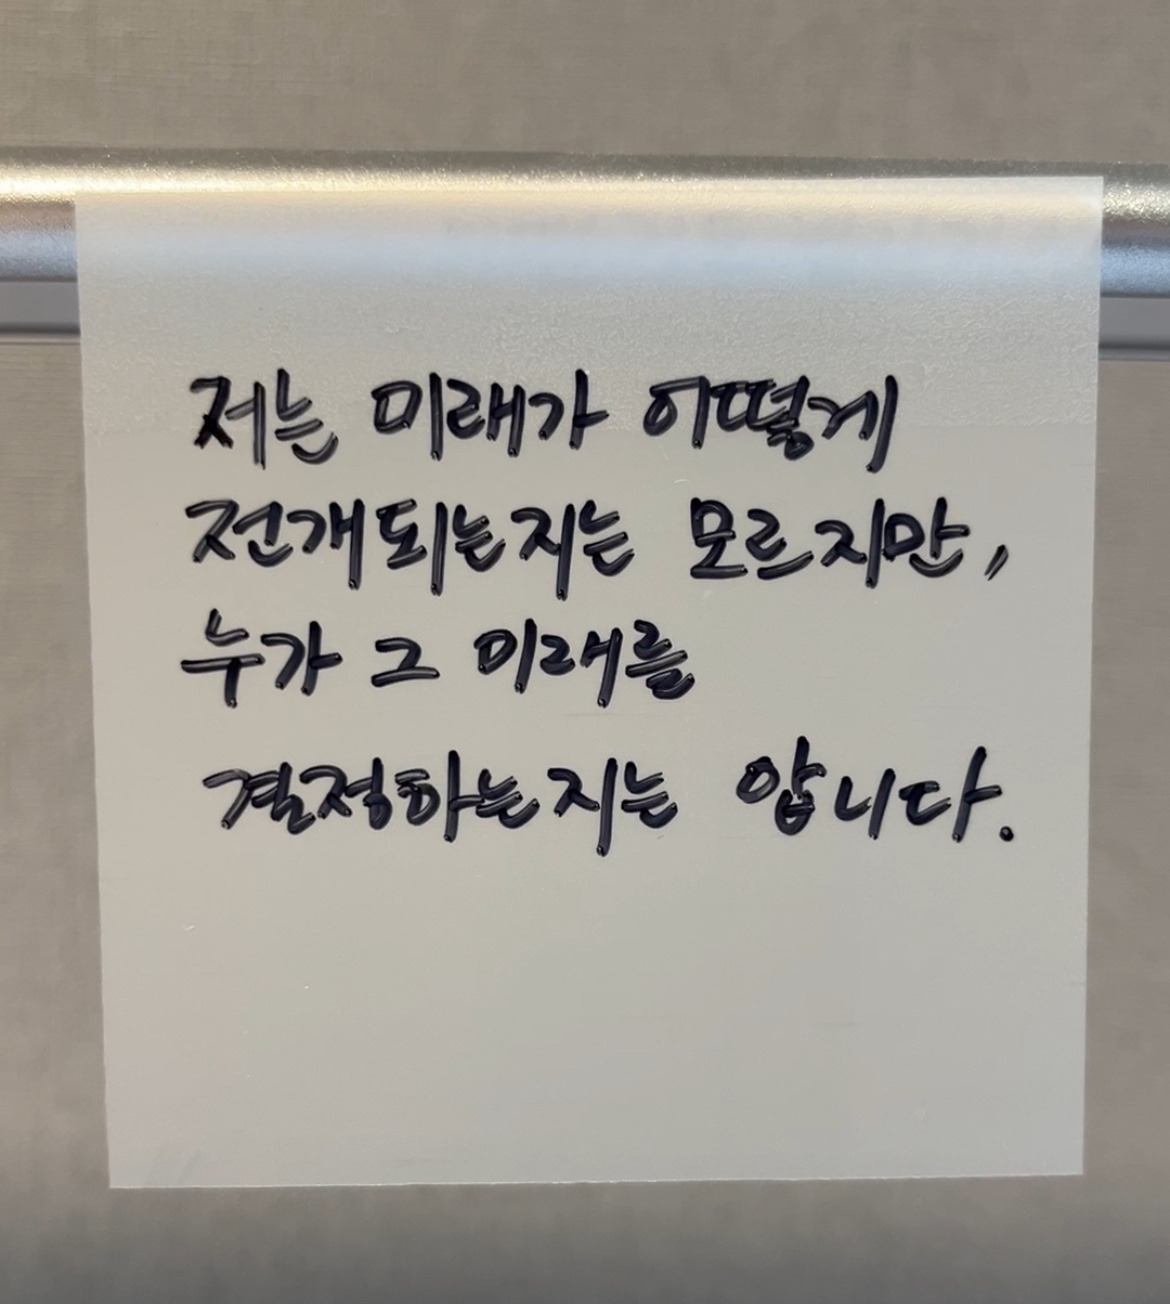 저는 미래가 어떻게
전개되는지는 모르지만,
누가 그 미래를
결정하는지는 압니다.